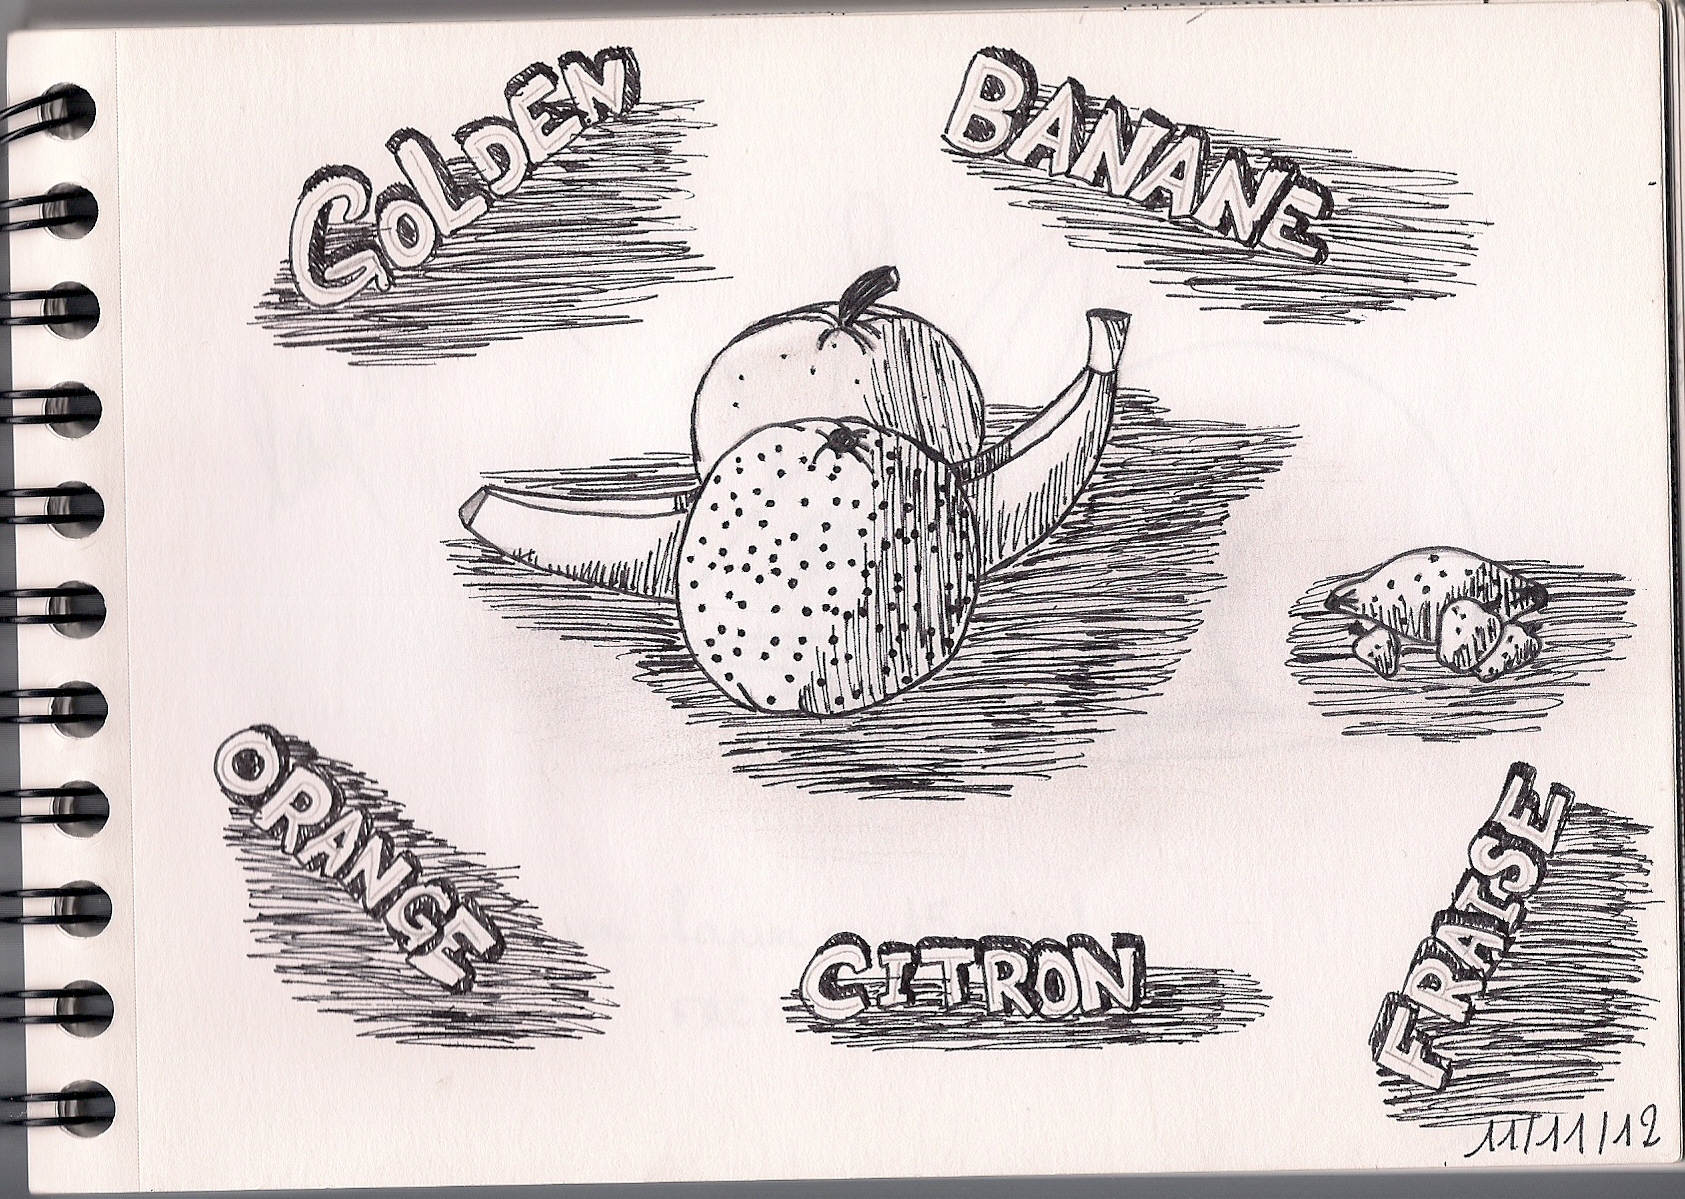 GOLDEN
BANANE
ORANGE
CITRON
FRAISE
11/11/12